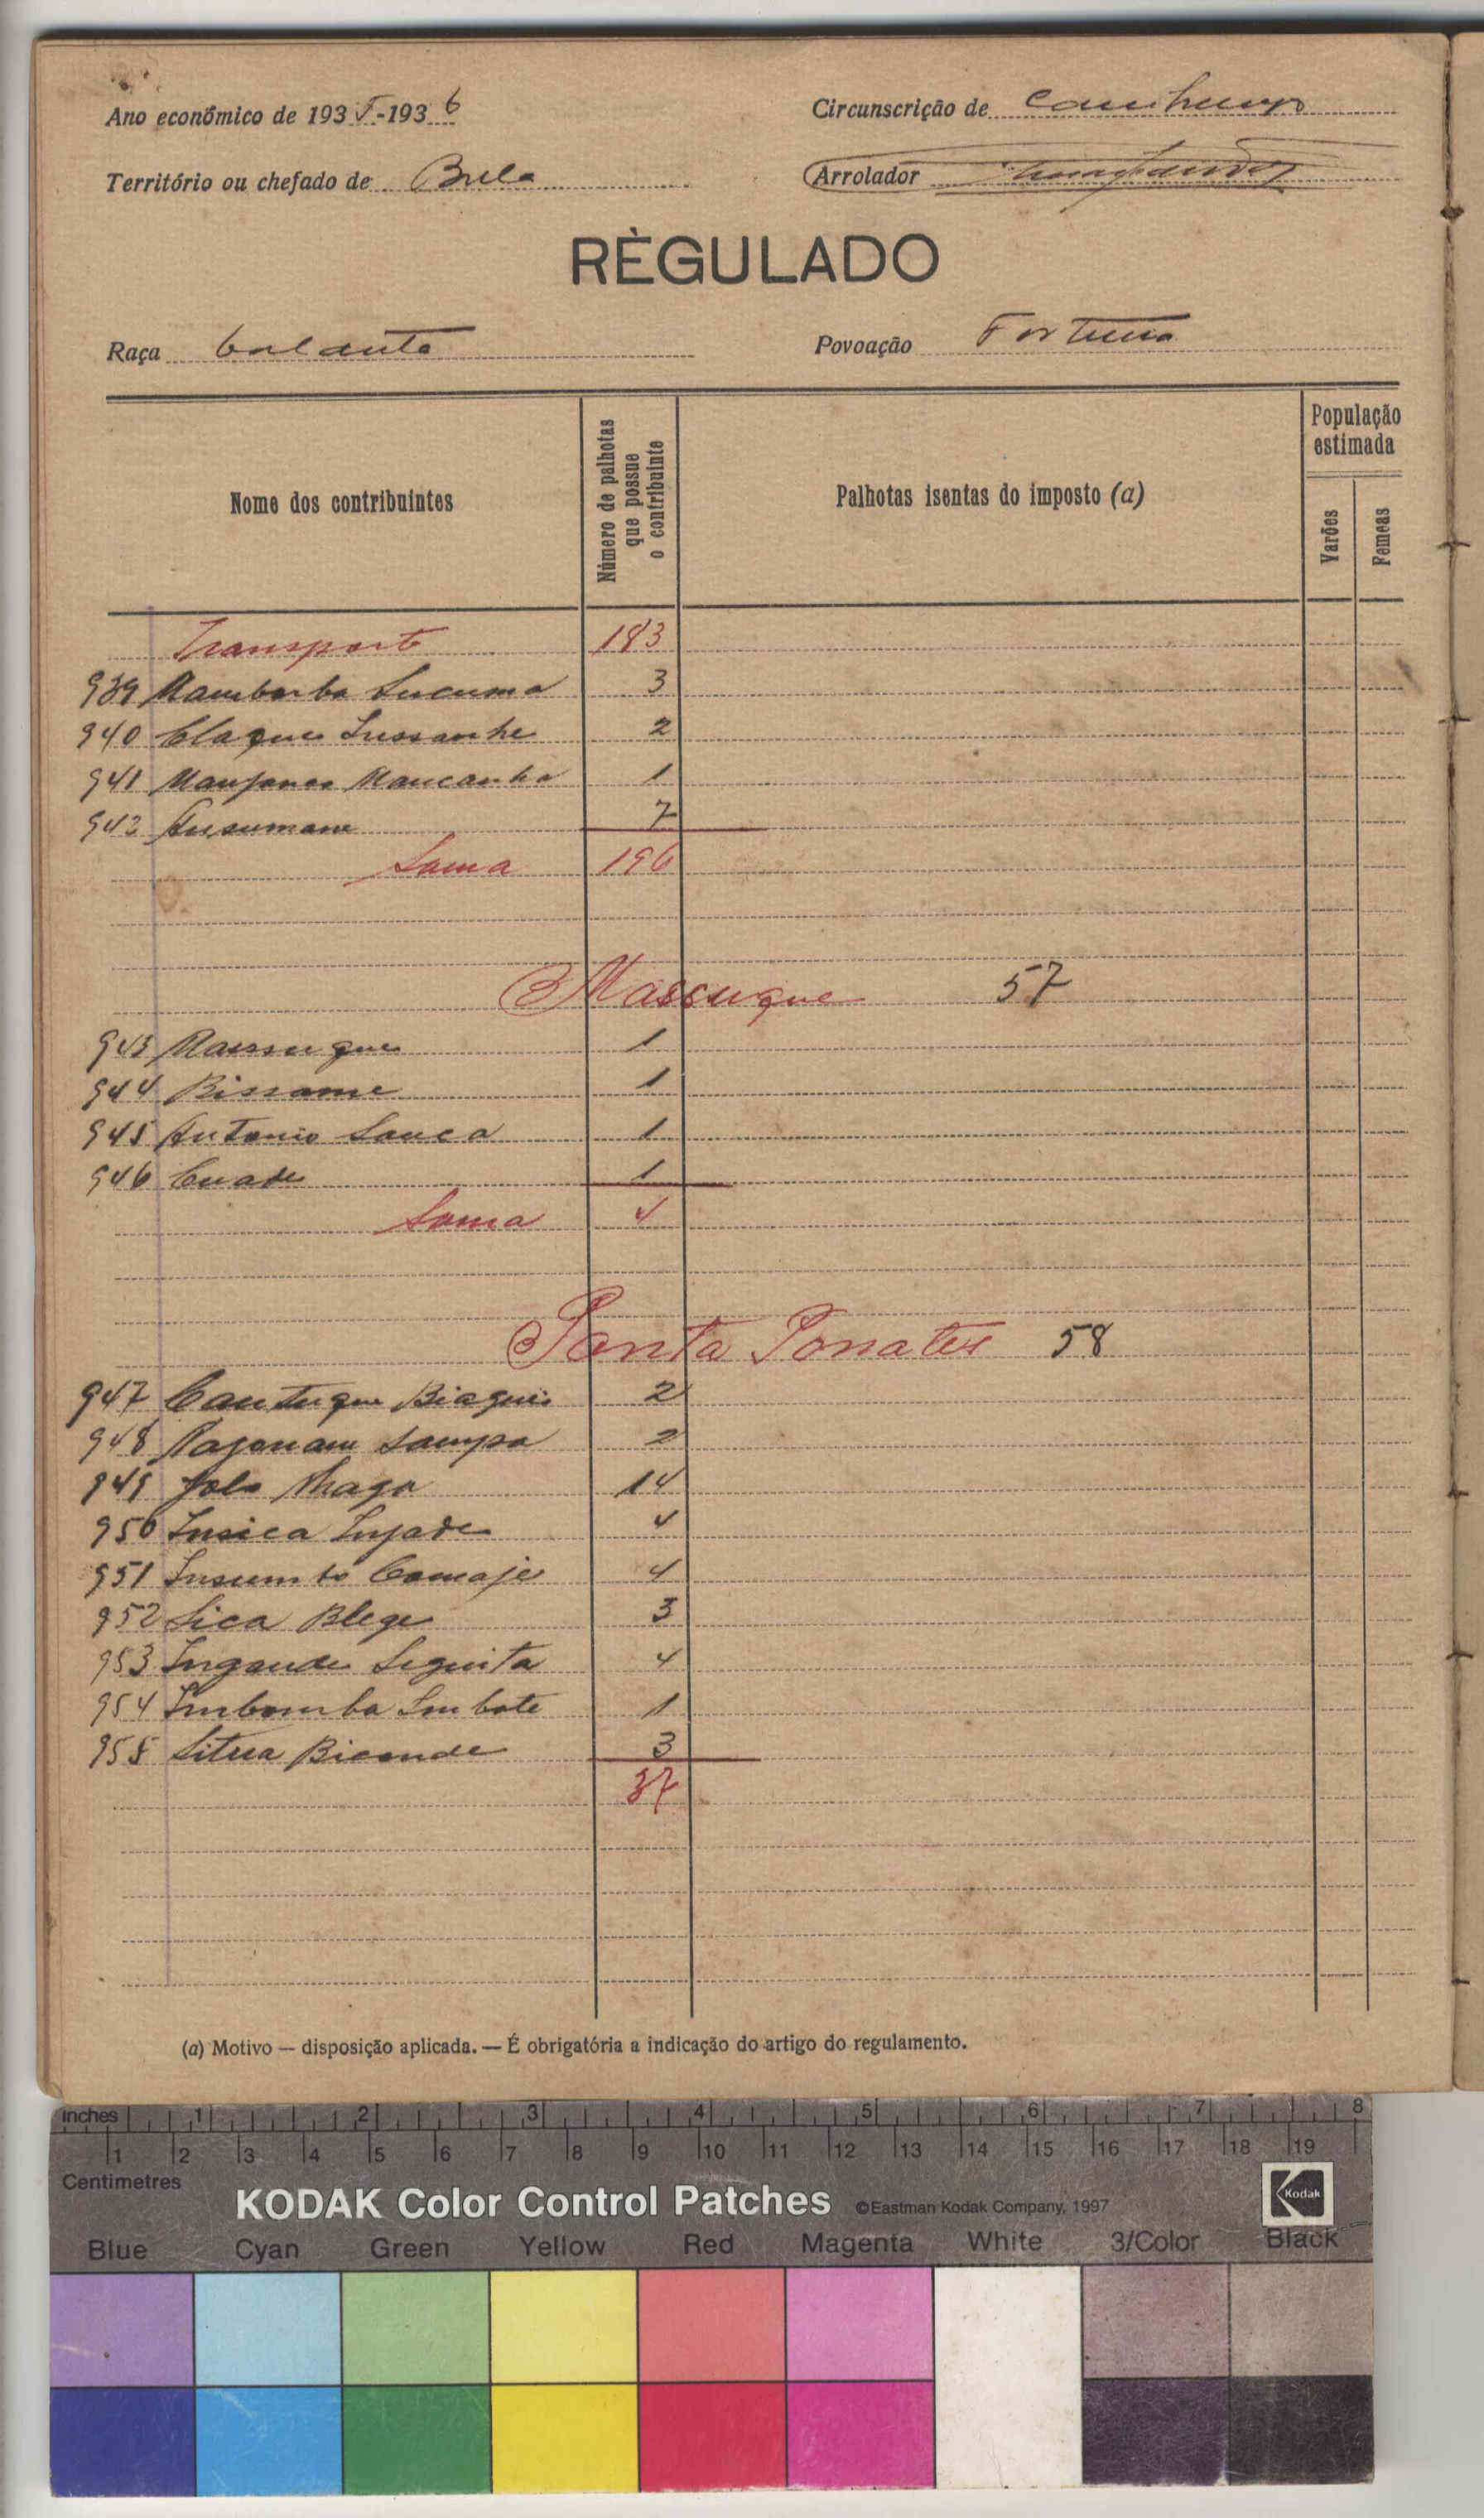 Ano económico de 1935-1936
Circunscrição de Canhungo
Território ou chefado de Bula
Arrolador
RÈGULADO
Raça balanta
Povoação Fortuna
Nome dos contribuintes
Número de palhotas que possue o contribuinte
Palhotas isentas do imposto (a)
População estimada
Varões
Femeas
Transport 183
939 Sucuma 3
940 2
941 Mancanha 1
942 Insumane 7
Soma 196
Massuque 57
943 Massuque 1
944 Bissame 1
945 Antonio Sanca 1
946 Cuade 1
Soma 4
Ponta Ponates 58
947 Cantuque Biague 2
948 Sampa 2
949 14
950 4
951 4
952 Sica Blege 3
953 Ingande Siguita 4
954 Imbomba Imbate 1
955 Situa Biconde 3
37
(a) Motivo — disposição aplicada. — É obrigatória a indicação do artigo do regulamento.
inches 1 2 3 4 5 6 7 8
1 2 3 4 5 6 7 8 9 10 11 12 13 14 15 16 17 18 19
Centimetres
KODAK Color Control Patches ©Eastman Kodak Company, 1997 Kodak
Blue Cyan Green Yellow Red Magenta White 3/Color Black